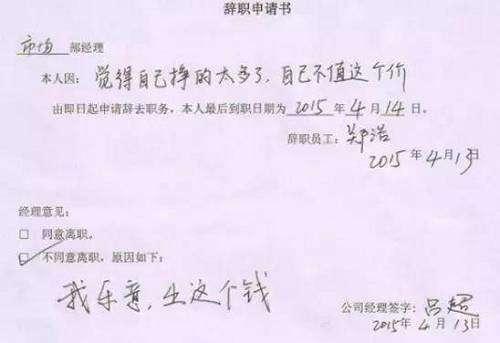 辞职申请书
市场 部经理
本人因：觉得自己挣的太多了，自己不值这个价
由即日起申请辞去职务，本人最后到职日期为 2015 年 4 月 14 日。
辞职员工：郑浩
2015 年 4 月 13 日
经理意见：
□ 同意离职。
□ 不同意离职，原因如下：
我乐意，出这个钱
公司经理签字：吕超
2015年 4 月 13 日